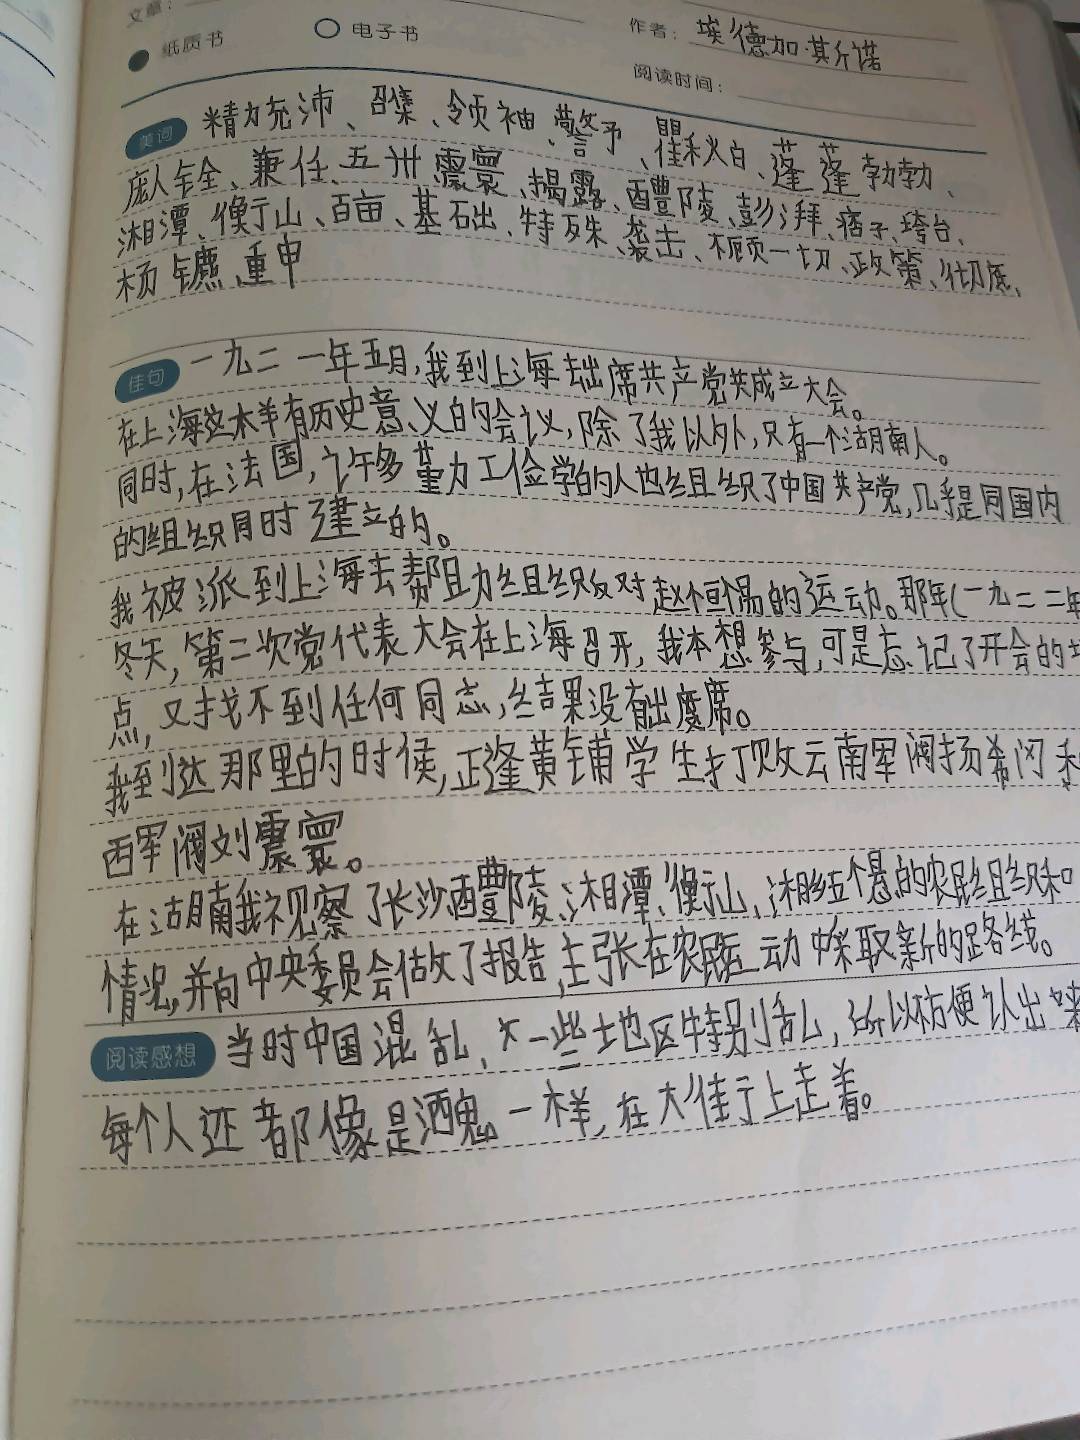 文章：
纸质书 电子书 作者：埃德加·斯诺
阅读时间：
美词 精力充沛、召集、领袖、警予、瞿秋白、蓬蓬勃勃、
庞人铨、兼任、五卅、震寰、揭露、醴陵、彭湃、痞子、垮台、
湘潭、衡山、百亩、基础、特殊、袭击、不顾一切、政策、彻底、
杨镳、重申
佳句 一九二一年五月，我到上海去出席共产党共成立大会。
在上海这次有历史意义的会议，除了我以外，只有一个湖南人。
同时，在法国，许多勤工俭学的人也组织了中国共产党，几乎是同国内
的组织同时建立的。
我被派到上海去帮助组织反对赵恒惕的运动。那年（一九二二年
冬天，第二次党代表大会在上海召开，我本想参与，可是忘记了开会的地
点，又找不到任何同志，结果没有出席。
我到达那里的时候，正逢黄铺学生打败云南军阀扬希冈和
西军阀刘震寰。
在湖南我视察了长沙、醴陵、湘潭、衡山、湘乡五个县的农民组织和
情况，并向中央委员会做了报告，主张在农民运动中采取新的路线。
阅读感想 当时中国混乱，一些土地区特别乱，所以方便认出来
每个人还都像是酒鬼一样，在大街上走着。